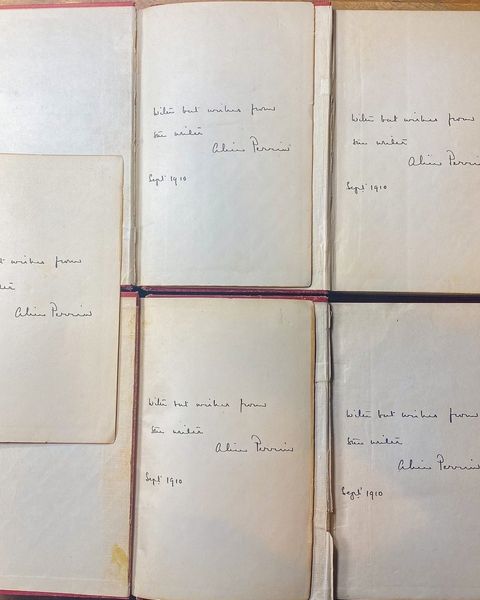 With best wishes from
the writer
Alice Perrin
Sept 1910
With best wishes from
the writer
Alice Perrin
Sept 1910
t wishes from
Alice Perrin
With best wishes from
the writer
Alice Perrin
Sept 1910
With best wishes from
the writer
Alice Perrin
Sept 1910